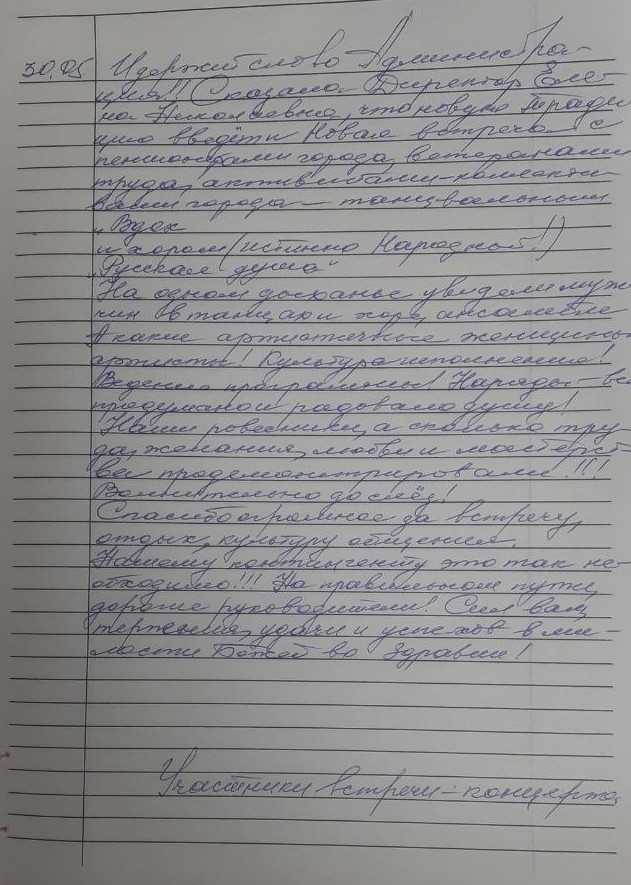 30.05 И держит слово Администра-
ция!! Сказала Директор Еле-
на Николаевна, что новую Тради
цию введёт и Новая встреча с
пенсионерами города, ветеранами
труда, активистами-коллекти
вами города - танцевальным
"Вдох
и хором (истинно Народный!)
"Русская душа"
На одном дыханье увидели муж
чин в танцах и хоре, ансамбле
А какие артистичные женщины
артисты! Культура исполнения!
Ведение программы! Наряды - всё
продумано и радовало душу!
Наши ровесники, а сколько тру-
да, желания, любви и мастерст-
ва продемонстрировали!!!
Волнительно до слёз!
Спасибо огромное за встречу,
отдых, культуру общения.
Нашему контингенту это так не-
обходимо!!! На правильном пути,
дорогие руководители! Сил вам,
терпения, удачи и успехов в ми-
лости Божей во здравии!
Участники встречи-концерта